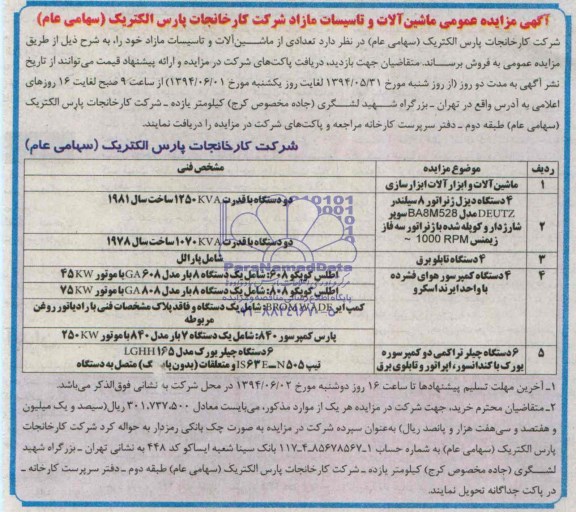 آگهی مزایده عمومی ماشین‌آلات و تاسیسات مازاد شرکت کارخانجات پارس الکتریک (سهامی عام)
شرکت کارخانجات پارس الکتریک (سهامی عام) در نظر دارد تعدادی از ماشین‌آلات و تاسیسات مازاد خود را، به شرح ذیل از طریق
مزایده عمومی به فروش برساند. متقاضیان جهت بازدید، دریافت پاکت‌های شرکت در مزایده و ارائه پیشنهاد قیمت می‌توانند از تاریخ
نشر آگهی به مدت دو روز (از روز شنبه مورخ ۱۳۹۴/۰۵/۳۱ لغایت روز یکشنبه مورخ ۱۳۹۴/۰۶/۰۱) از ساعت ۹ صبح لغایت ۱۶ روزهای
اعلامی به آدرس واقع در تهران ـ بزرگراه شهید لشگری (جاده مخصوص کرج) کیلومتر یازده ـ شرکت کارخانجات پارس الکتریک
(سهامی عام) طبقه دوم ـ دفتر سرپرست کارخانه مراجعه و پاکت‌های شرکت در مزایده را دریافت نمایند.
شرکت کارخانجات پارس الکتریک (سهامی عام)
ردیف موضوع مزایده مشخص فنی
۱ ماشین‌آلات و ابزارآلات ابزارسازی
۲ ۴ دستگاه دیزل ژنراتور ۸ سیلندر
DEUTZ مدل BA8M528 سوپر
شارژدار و کوپله شده با ژنراتور سه فاز
زیمنس 1000 RPM ~
دو دستگاه با قدرت ۱۲۵۰ KVA ساخت سال ۱۹۸۱
دو دستگاه با قدرت ۱۰۷۰ KVA ساخت سال ۱۹۷۸
۳ ۴ دستگاه تابلو برق شامل پارالل
۴ ۴ دستگاه کمپرسور هوای فشرده
با واحد ایرند اسکرو
اطلس کوپکو ۶۰۸: شامل یک دستگاه ۸ بار مدل GA۶۰۸ با موتور ۴۵ KW
اطلس کوپکو ۸۰۸: شامل یک دستگاه ۸ بار مدل GA۸۰۸ با موتور ۷۵ KW
کمپ ایر BROMWADE: شامل یک دستگاه و فاقد پلاک مشخصات فنی با رادیاتور روغن
مربوطه
پارس کمپرسور ۸۴۰: شامل یک دستگاه ۷ بار مدل ۸۴۰ با موتور ۲۵۰ KW
۵ ۶ دستگاه چیلر تراکمی دو کمپرسوره
یورک با کندانسور، اپراتور و تابلوی برق
۶ دستگاه چیلر یورک مدل LGHH۱۶۵
تیپ N۵۰۵ـ IS۶۳E و متعلقات (بدون متصل به دستگاه
ParaNamadData
۱ـ آخرین مهلت تسلیم پیشنهادها تا ساعت ۱۶ روز دوشنبه مورخ ۱۳۹۴/۰۶/۰۲ در محل شرکت به نشانی فوق‌الذکر می‌باشد.
۲ـ متقاضیان محترم خرید، جهت شرکت در مزایده هر یک از موارد مذکور، می‌بایست معادل ۳۰۱،۷۳۷،۵۰۰ ریال (سیصد و یک میلیون
و هفتصد و سی‌هفت هزار و پانصد ریال) به‌عنوان سپرده شرکت در مزایده به صورت چک بانکی رمزدار به حواله کرد شرکت کارخانجات
پارس الکتریک (سهامی عام) به شماره حساب ۱ـ۸۵۶۷۸۵۶۷ـ۴ـ۱۱۷ بانک سینا شعبه ایساکو کد ۴۴۸ به نشانی تهران ـ بزرگراه شهید
لشگری (جاده مخصوص کرج) کیلومتر یازده ـ شرکت کارخانجات پارس الکتریک (سهامی عام) طبقه دوم ـ دفتر سرپرست کارخانه ـ
در پاکت جداگانه تحویل نمایند.